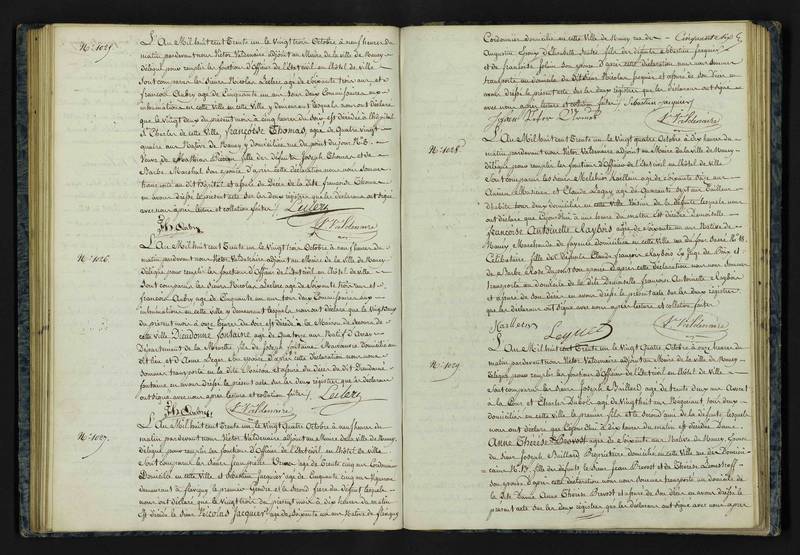 N.o 1025
L'An Mil huit cent Trente un le Vingt trois Octobre à neuf heures du
matin pardevant nous Victor Valdenaire adjoint au Maire de la ville de Nancy
délégué pour remplir les fonctions d'Officier de l'Etat civil en l'hôtel de Ville
Sont comparus les Sieurs Nicolas Leclerc agé de soixante trois ans et
François Aubry agé de Cinquante un ans tous deux Commissaires aux
inhumations en cette Ville y demeurant lesquels nous ont déclaré
que le Vingt deux du présent mois à cinq heures du soir est décédée à l'hôpital
St Charles de cette Ville, Françoise Thomas, agée de Quatre Vingt
quatre ans Native de Nancy y domiciliée rue du point du jour N.o 6
Veuve de fille des défunts Joseph Thomas et de
Barbe Marchal son épouse d'après cette déclaration nous nous sommes
transporté au dit hôpital et assuré du Décès de la dite Françoise Thomas
en avons dressé le présent acte sur les deux registres que les déclarants ont signé
avec nous après lecture et collation faites
Leclerc
Aubry
Vr Valdenaire
N.o 1026
L'An Mil huit cent Trente un le Vingt trois Octobre à neuf heures du
matin pardevant nous Victor Valdenaire adjoint au Maire de la Ville de Nancy
délégué pour remplir les fonctions d'Officier de l'Etat civil en l'hôtel de Ville
Sont comparus les Sieurs Nicolas Leclerc agé de Soixante trois ans et
François Aubry agé de Cinquante un ans tous deux Commissaires aux
inhumations en cette Ville y demeurant lesquels nous ont déclaré que le Vingt deux
du présent mois à onze heures du soir est décédé à la Maison de Secours de
cette Ville Dieudonné fontaine agé de Quatorze ans Natif d'
Département de la Meurthe fils de Joseph fontaine Manœuvre domicilié au
dit lieu et d'Anne Leger son épouse d'après cette déclaration nous nous
sommes transporté en la dite Maison et assuré du décès du dit Dieudonné
fontaine en avons dressé le présent acte sur les deux registres que les déclarants
ont signé avec nous après lecture et collation faites
Leclerc
Aubry
Vr Valdenaire
N.o 1027
L'An Mil huit cent Trente un le Vingt quatre Octobre à neuf heures du
matin pardevant nous Victor Valdenaire adjoint au Maire de la Ville de Nancy
délégué pour remplir les fonctions d'Officier de l'Etat civil en l'hôtel de Ville
Sont comparus les Sieurs Jean agé de Trente cinq ans Cordonnier
Domicilié en cette Ville et Sébastien Jacquier agé de Cinquante cinq ans Vigneron
demeurant à le premier Gendre et le Second frère du défunt lesquels
nous ont déclaré que le Vingt trois du présent mois à dix heures du matin
est décédé le Sieur Nicolas Jacquier agé de Soixante un ans Natif de
Cordonnier domicilié en cette Ville de Nancy rue des
Augustins Epoux d'Elisabeth fils des défunts Sébastien Jacquier
et de françoise son épouse d'après cette déclaration nous nous sommes
transporté au domicile du dit Sieur Nicolas Jacquier et assuré de son décès en
avons dressé le présent acte sur les deux registres que les déclarants ont signé
avec nous après lecture et collation faites
Sébastien jacquier
Vr Valdenaire
N.o 1028
L'An Mil huit cent Trente un le Vingt quatre Octobre à dix heures du
matin pardevant nous Victor Valdenaire adjoint au Maire de la ville de Nancy
délégué pour remplir les fonctions d'Officier de l'Etat civil en l'hôtel de Ville
Sont comparus les Sieurs Melchior agé de soixante seize ans
Ancien Militaire, et Claude Lequy agé de Quarante sept ans Tailleur
d'habits tous deux domiciliés en cette Ville Voisins de la défunte lesquels nous
ont déclaré que Cejourd'hui à une heure du matin est décédée Demoiselle
Françoise Antoinette Claybois agée de soixante un ans Native de
Nancy Marchande de fayence domiciliée en cette Ville
Célibataire fille des défunts Claude François Claybois Ex Juge de Paix et
de son épouse d'après cette déclaration nous nous sommes
transporté au domicile de la dite Demoiselle Françoise Antoinette Claybois
et assuré de son décès en avons dressé le présent acte sur les deux registres
que les déclarants ont signé avec nous après lecture et collation faites
Lequy
Vr Valdenaire
N.o 1029
L'An Mil huit cent Trente un le Vingt Quatre Octobre à onze heures du
matin pardevant nous Victor Valdenaire adjoint au Maire de la Ville de Nancy
délégué pour remplir les fonctions d'Officier de l'Etat civil en l'hôtel de Ville
Sont comparus les Sieurs Joseph Baillard agé de Trente deux ans Avocat
à la Cour et Charles agé de Vingt huit ans Négociant tous deux
domiciliés en cette Ville le premier fils et le Second ami de la défunte lesquels
nous ont déclaré que Cejourd'hui à dix heures du matin est décédée Dame
Anne Thérèse Prevost agée de Soixante ans Native de Nancy, Epouse
du Sieur Joseph Baillard Propriétaire domiciliée en cette Ville rue des Dominicains
fille des défunts le Sieur Jean Prevost et de Thérèse
son épouse d'après cette déclaration nous nous sommes transporté au domicile de
la dite Dame Anne Thérèse Prevost et assuré de son décès en avons dressé le
présent acte sur les deux registres que les déclarants ont signé avec nous après